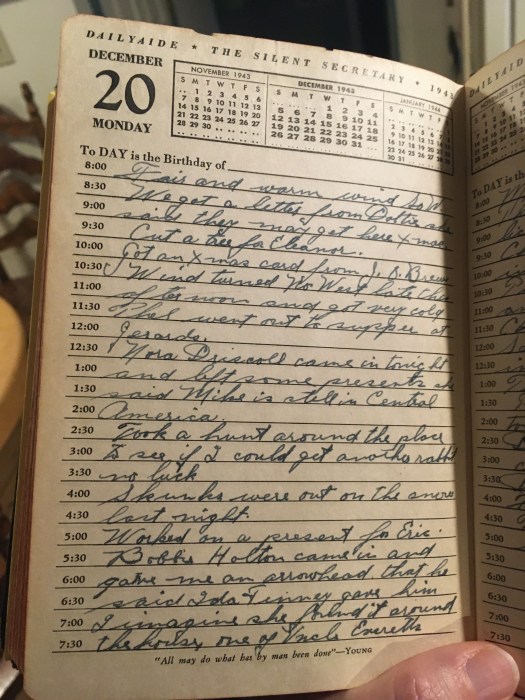 DAILYAIDE * THE SILENT SECRETARY * 194
DECEMBER
20
MONDAY
NOVEMBER 1943
S M T W T F S
.. 1 2 3 4 5 6
7 8 9 10 11 12 13
14 15 16 17 18 19 20
21 22 23 24 25 26 27
28 29 30 .. .. .. ..
DECEMBER 1943
S M T W T F S
1 2 3 4
5 6 7 8 9 10 11
12 13 14 15 16 17 18
19 20 21 22 23 24 25
26 27 28 29 30 31 ..
JANUARY 1944
DAILYAID
To DAY is the Birthday of
To DAY is th
8:00 Fair and warm wind So W.
8:30 We got a letter from Dottie she
9:00 said they may get here Xmas
9:30 Cut a tree for Eleanor.
10:00 Got an Xmas card from J. B. Brew
10:30 Wind turned No West late this
11:00 afternoon and got very cold
11:30 went out to supper at
12:00 Gerards.
12:30 Nora Driscoll came in tonight
1:00 and left some presents she
1:30 said Mike is still in Central
2:00 America.
2:30 Took a hunt around the place
3:00 to see if I could get another rabbit
3:30 no luck
4:00 Skunks were out on the snow
4:30 last night.
5:00 Worked on a present for Eric.
5:30 Bobbie Holton came in and
6:00 gave me an arrowhead that he
6:30 said Ida Tinney gave him
7:00 I imagine she found it around
7:30 the house, one of Uncle Everetts
"All may do what has by man been done"—YOUNG